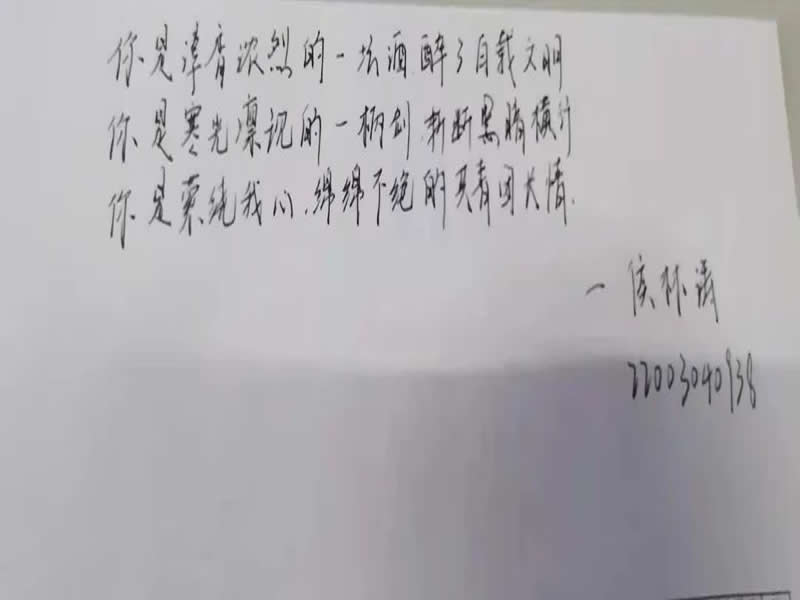 你是津香浓烈的一坛酒,醉了自载文明
你是寒光凛冽的一柄剑,斩断黑暗横行
你是萦绕我心,绵绵不绝的共青团大情.
—侯林涛
22003040938